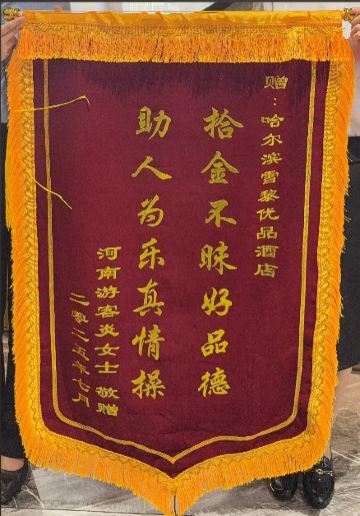 赠：哈尔滨雪黎优品酒店
拾金不昧好品德
助人为乐真情操
河南游客炎女士 敬赠
二零二五年七月